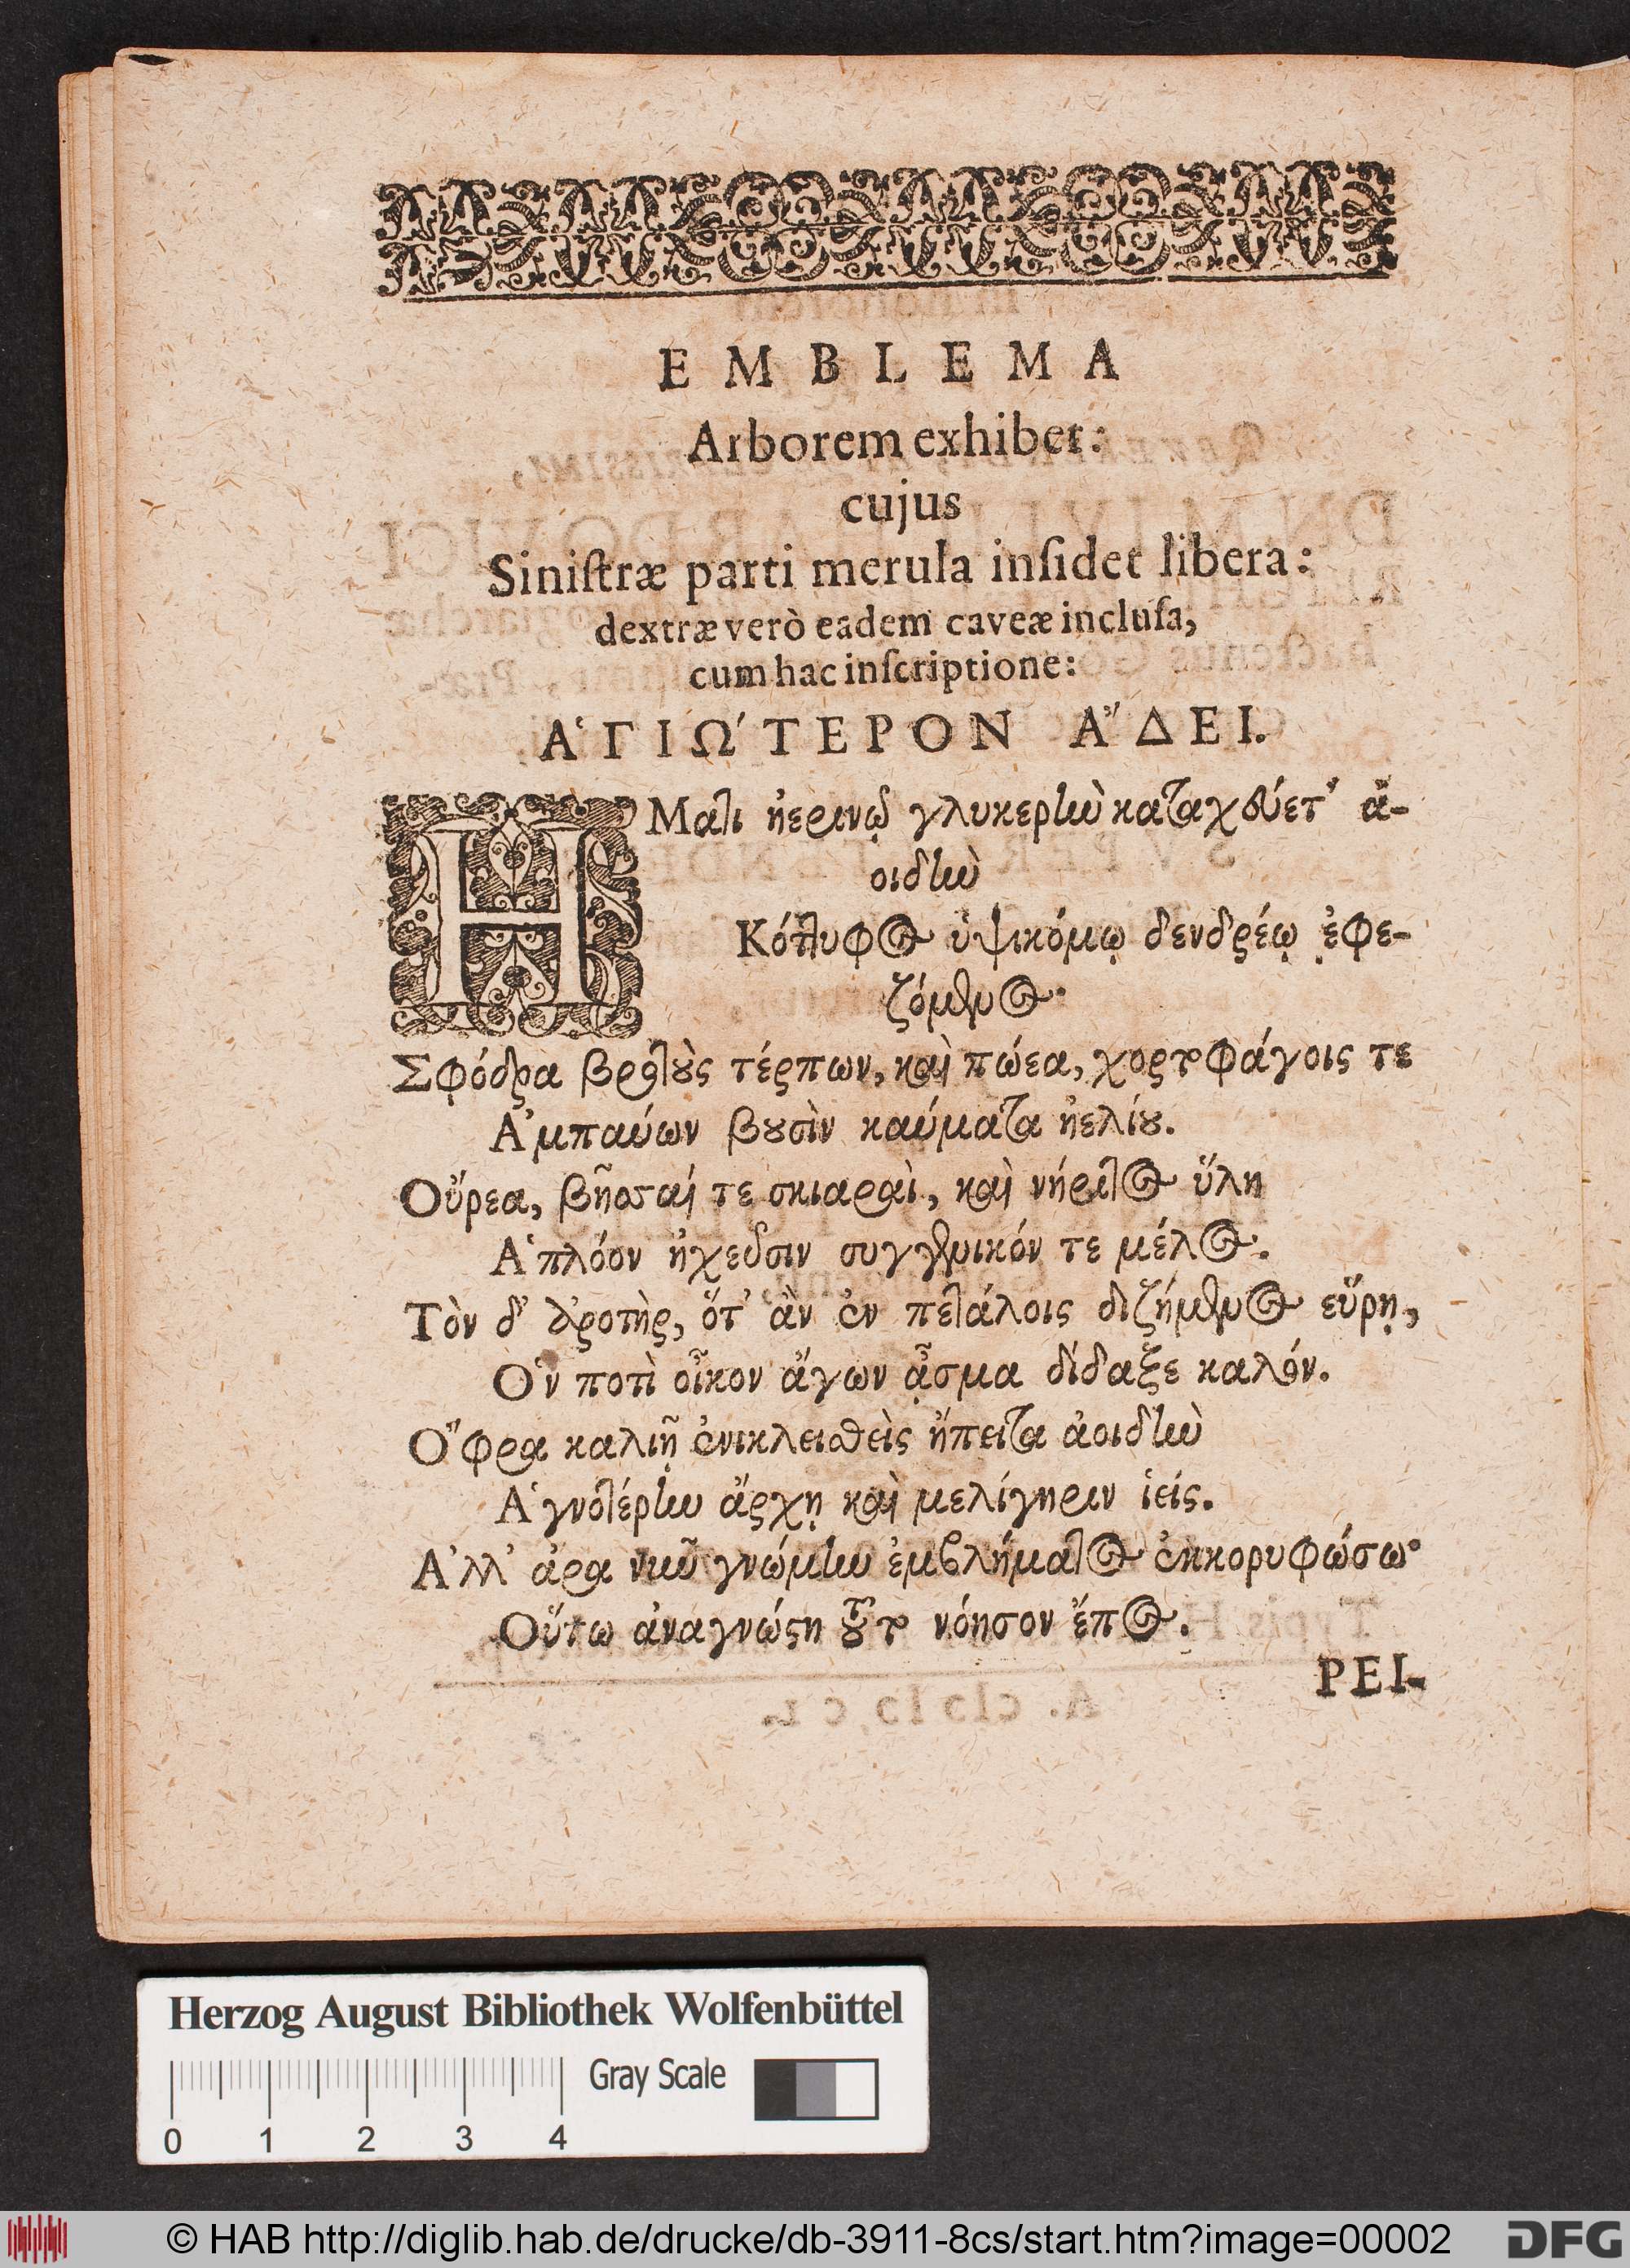 EMBLEMA
Arborem exhibet:
cujus
Siniſtræ parti merula inſidet libera:
dextræ verò eadem caveæ incluſa,
cum hac inſcriptione:
ἉΓΙΩ´ΤΕΡΟΝ ἌΔΕΙ.
ΗΜατι ἠερινῷ γλυκερὴν καταχεύετ' ἀ-
οιδὴν
Κόττυφος ὑψικόμῳ δενδρέῳ ἐφε-
ζόμενος·
Σφόδρα βροτοὺς τέρπων, καὶ πώεα, χορτοφάγοις τε
Ἀμπαύων βουσὶν καύματα ἠελίου.
Οὔρεα, βῆσσαί τε σκιαραὶ, καὶ νήριτος ὕλη
Ἁπλόον ἠχεῦσιν συγγενικόν τε μέλος.
Τὸν δ' ἀροτὴρ, ὅτ' ἂν ἐν πετάλοις διζήμενος εὕρῃ,
Ὃν ποτὶ οἶκον ἄγων ᾆσμα δίδαξε καλόν.
Ὄφρα καλιῇ ἐνικλειθεὶς ἤπειτα ἀοιδὴν
Ἁγνοτέρην ἄρχῃ καὶ μελίγηριν ἱείς.
Ἀλλ' ἄρα νῦν γνώμην ἐμβλήματος ἐκκορυφώσω·
Οὕτω ἀναγνώστη τοῦτο νόησον ἔπος.
PEI-
Herzog August Bibliothek Wolfenbüttel
Gray Scale
0 1 2 3 4
© HAB http://diglib.hab.de/drucke/db-3911-8cs/start.htm?image=00002
DFG